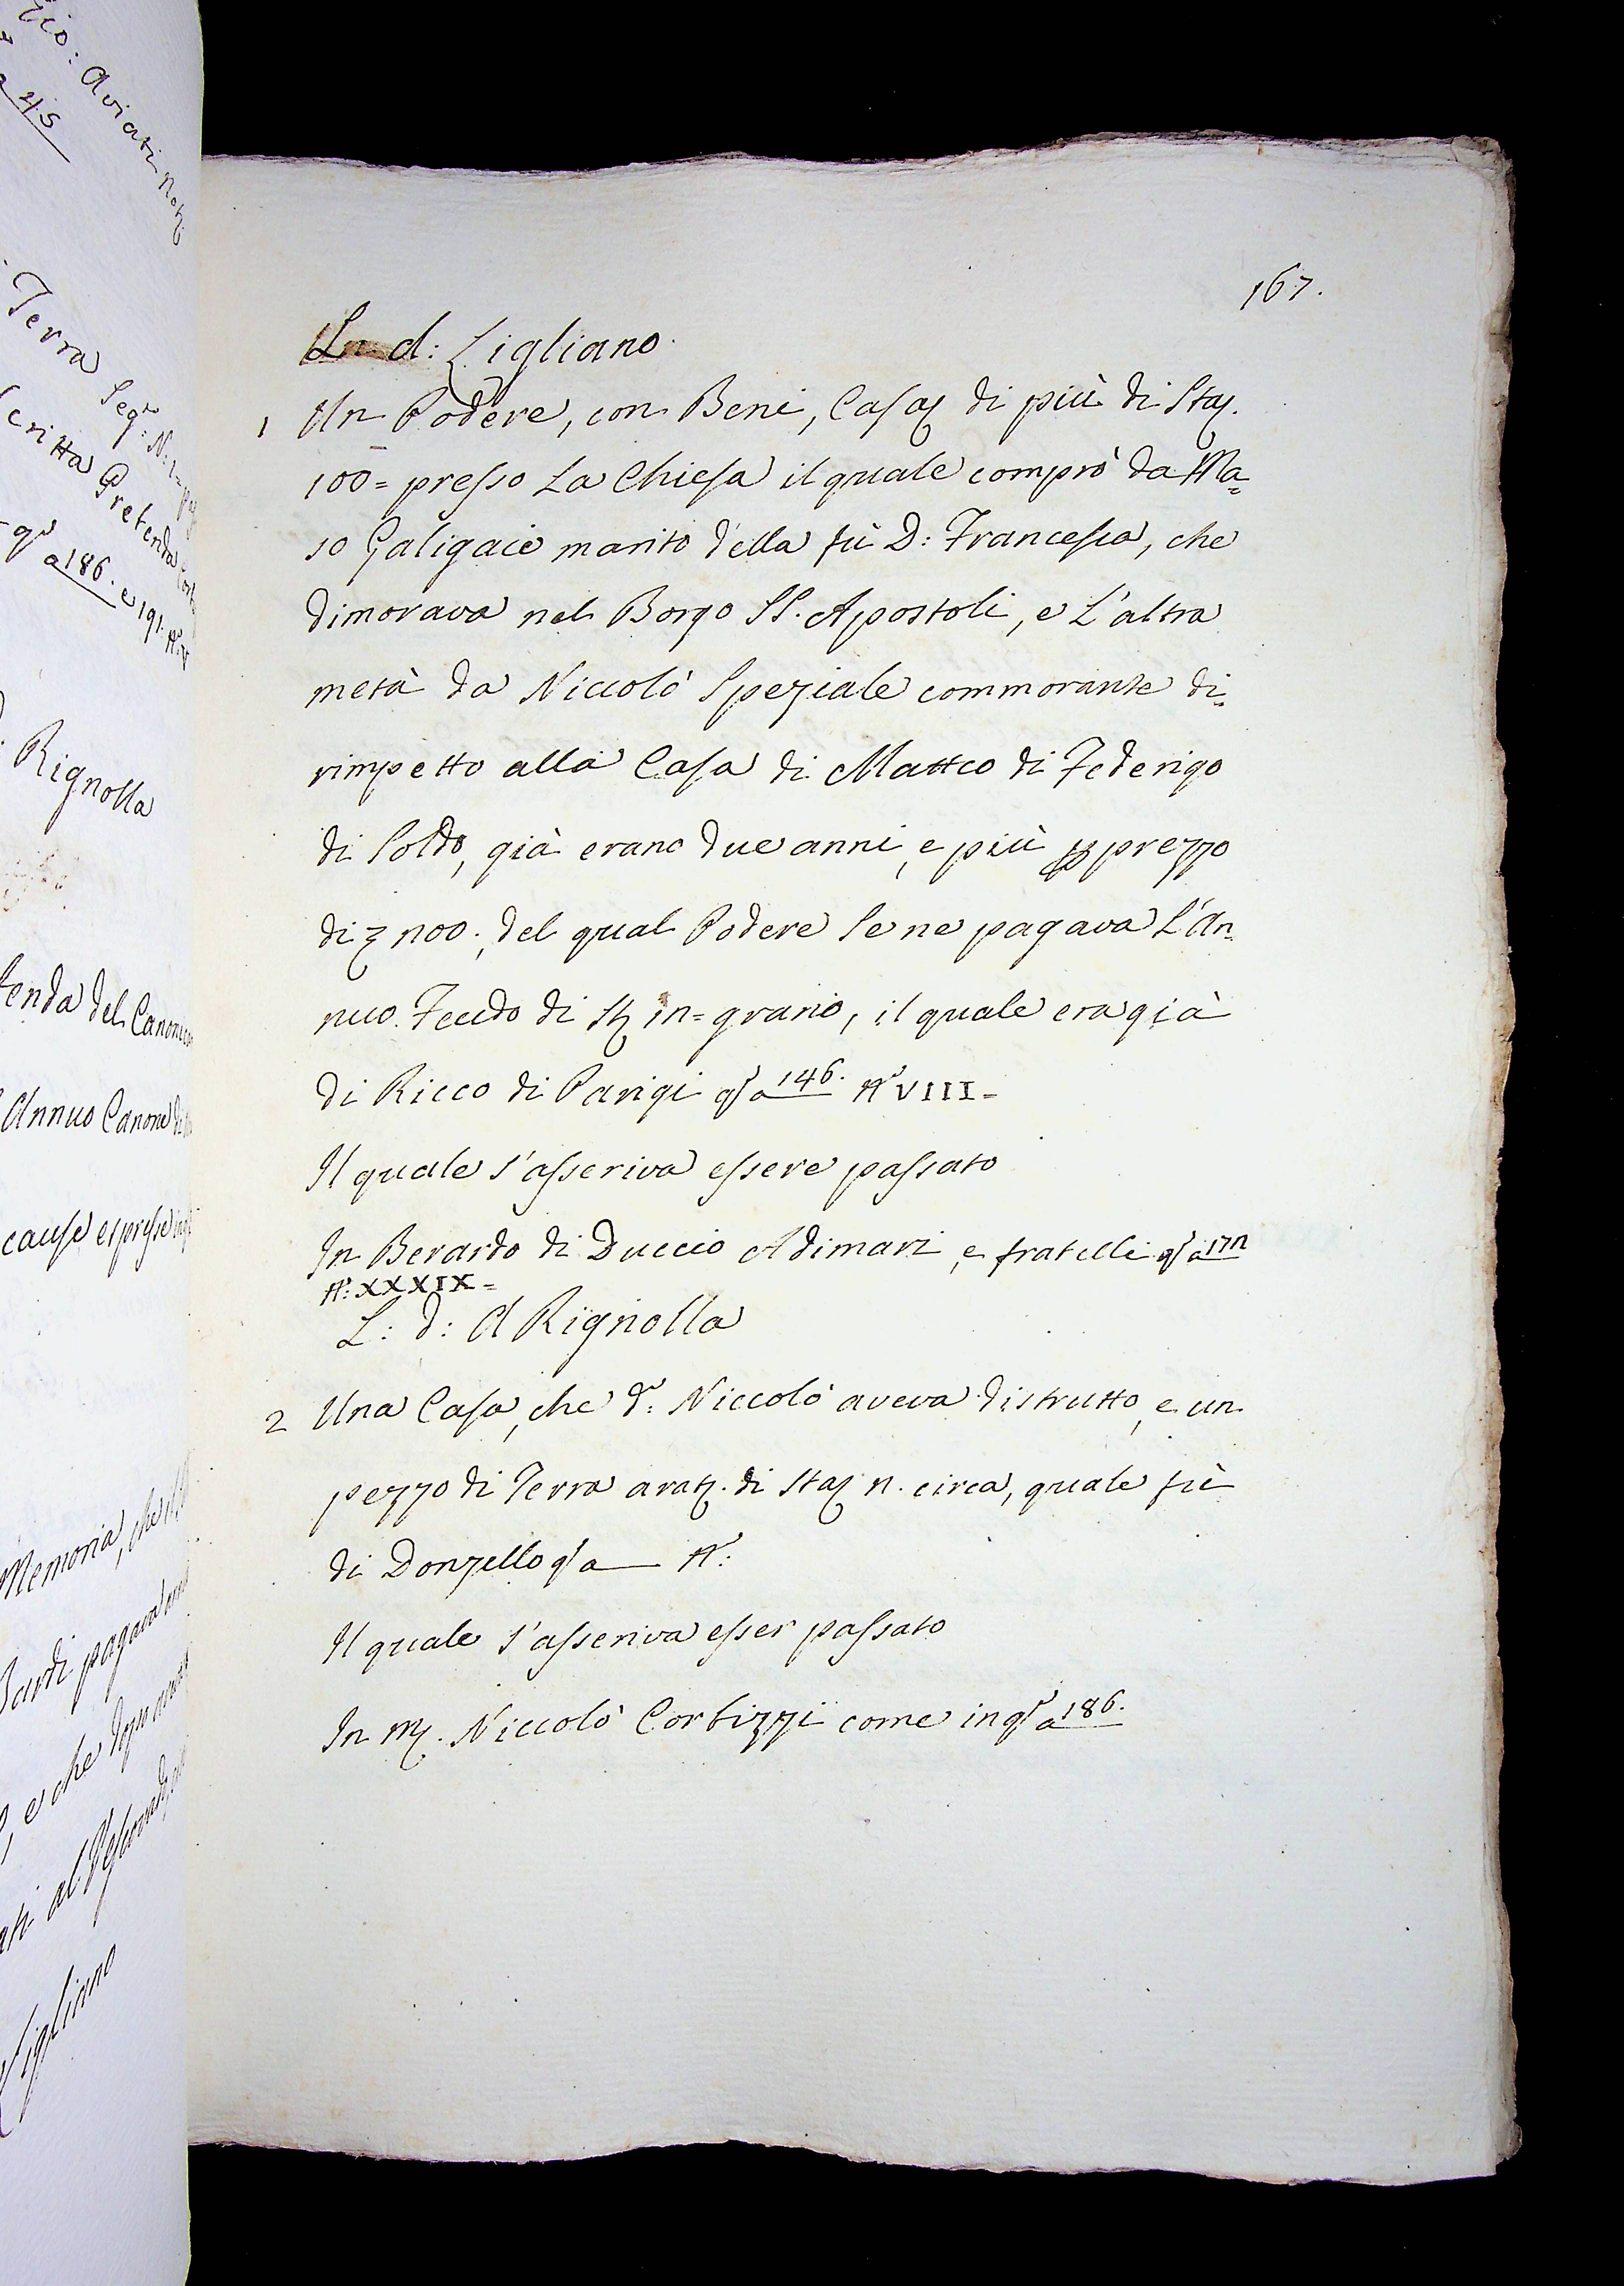 Gio: Aviati Not
a 45
Terra Seg: N: 1=
critta Pretenda
a 186. e 191.
Rignolla
enda del Canonic
Annuo Canone di
cause espresse in
Memoria, che il
Bardi pagava
, e che dopo
al Vescovado
Ligliano
167.
L. d: Ligliano.
1 Un Podere, con Beni, Casa di più di Sta.
100= presso La Chiesa il quale comprò da Ma=
so Galigaie marito della fù D: Francesca, che
dimorava nel Borgo SS. Apostoli, e L'altra
metà da Niccolò Speziale commorante di=
rimpetto alla Casa di Matteo di Federigo
di Soldo, già erano due anni, e più p prezzo
di 200.; del qual Podere Se ne pagava L'An=
nuo Feudo di St 12= grano, il quale era già
di Ricco di Parigi qs a 146. No VIII=
Il quale s'asseriva essere passato
In Berardo di Duccio Adimari, e fratelli qs a 172
No: XXXIX=
L: d: A Rignolla
2 Una Casa, che do: Niccolò aveva distrutto, e un
pezzo di Terra arat. di Sta 2. circa, quale fù
di Donzello qs a No:
Il quale s'asseriva esser passato
In M. Niccolò Corbizzi come in qs a 186.